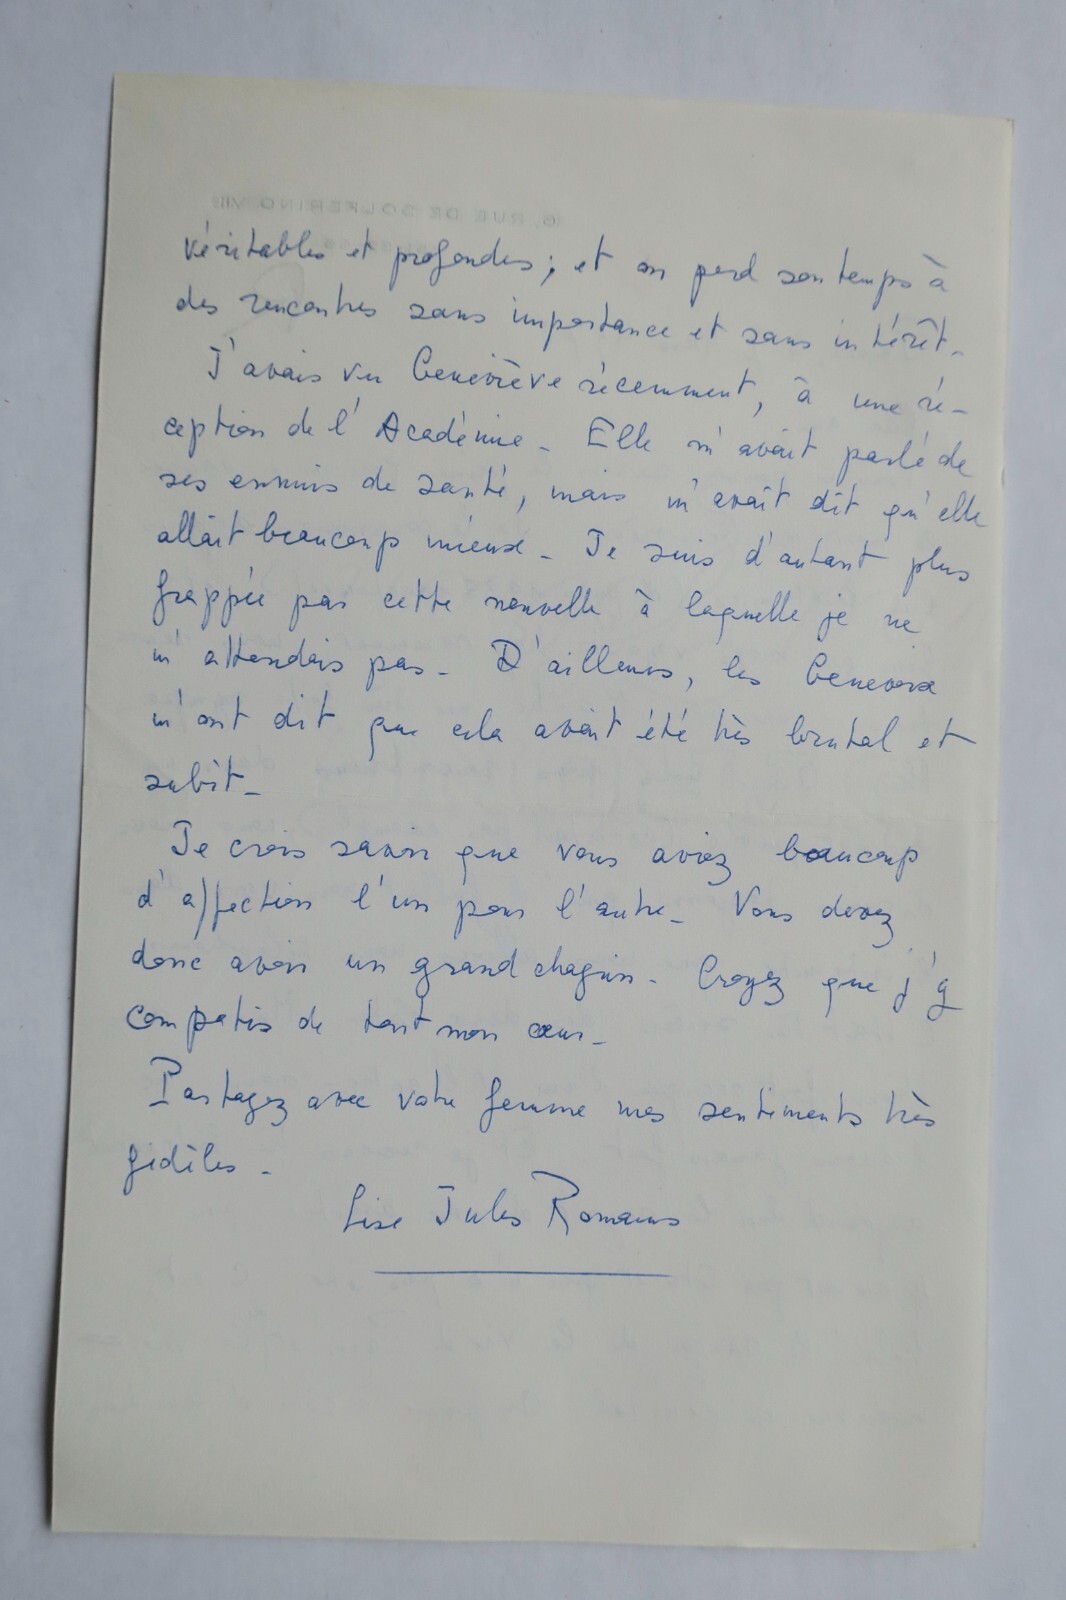 6, RUE DE SOLFERINO. VIIe
véritables et profondes ; et on perd son temps à
des rencontres sans importance et sans intérêt.
J'avais vu Geneviève récemment, à une ré-
ception de l'Académie - Elle m'avait parlé de
ses ennuis de santé, mais m'avait dit qu'elle
allait beaucoup mieux - Je suis d'autant plus
frappée par cette nouvelle à laquelle je ne
m'attendais pas - D'ailleurs, les Genevoix
m'ont dit que cela avait été très brutal et
subit -
Je crois savoir que vous aviez beaucoup
d'affection l'un pour l'autre - Vous devez
donc avoir un grand chagrin - Croyez que j'y
compatis de tout mon cœur -
Partagez avec votre femme mes sentiments très
fidèles -
Lise Jules Romains